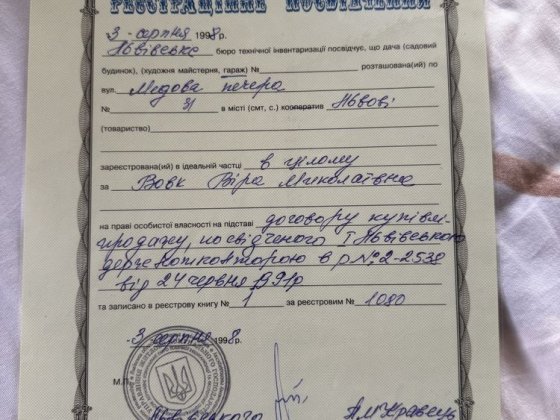 РЕЄСТРАЦІЙНЕ ПОСВІДЧЕННЯ
3 серпня 1998р.
Львівське бюро технічної інвентаризації посвідчує, що дача (садовий
будинок), (художня майстерня, гараж) № розташована(ий) по
вул. Медова печера
№ 31 в місті (смт, с.) кооператив Львові
(товариство)
зареєстрований(а) в ідеальній частці в цілому
за Вовк Віра Миколаївна
на праві особистої власності на підставі договору купівлі-
продажу, посвідченого І Львівською
держнотконторою в р№2-2538
від 24 червня 1991р
та записано в реєстрову книгу № 1 за реєстровим № 1080
3 серпня 1998
М.П.
А.М. Кравець